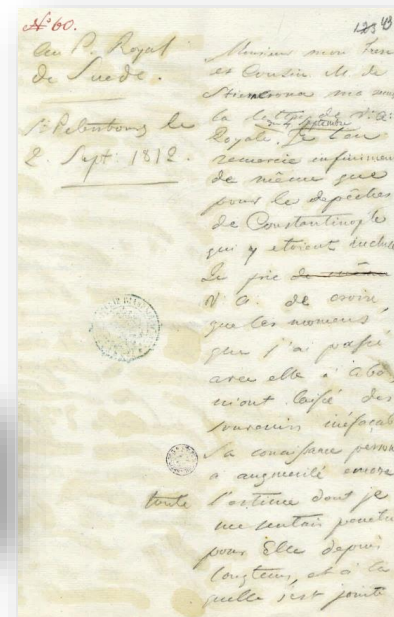 № 60.
123 43
Au P. Royal
de Suede.
St Petersbourg le
2. Sept. 1812.
Monsieur mon frere
et Cousin M. de
m'a
la lettre de V. A.
Septembre
Royale. Je l'en
remercie infiniment
de même que
pour les depêches
de Constantinople
qui y etoient inclu
Je prie de même
V. A. de croire
que les momens,
que j'ai passé
avec elle à Abo,
m'ont laissé des
souvenirs ineffaçab
Sa conaissance person
a augmenté encore
toute l'estime dont je
me sentais penetré
pour Elle depuis
longtems, et à la
quelle s'est jointe